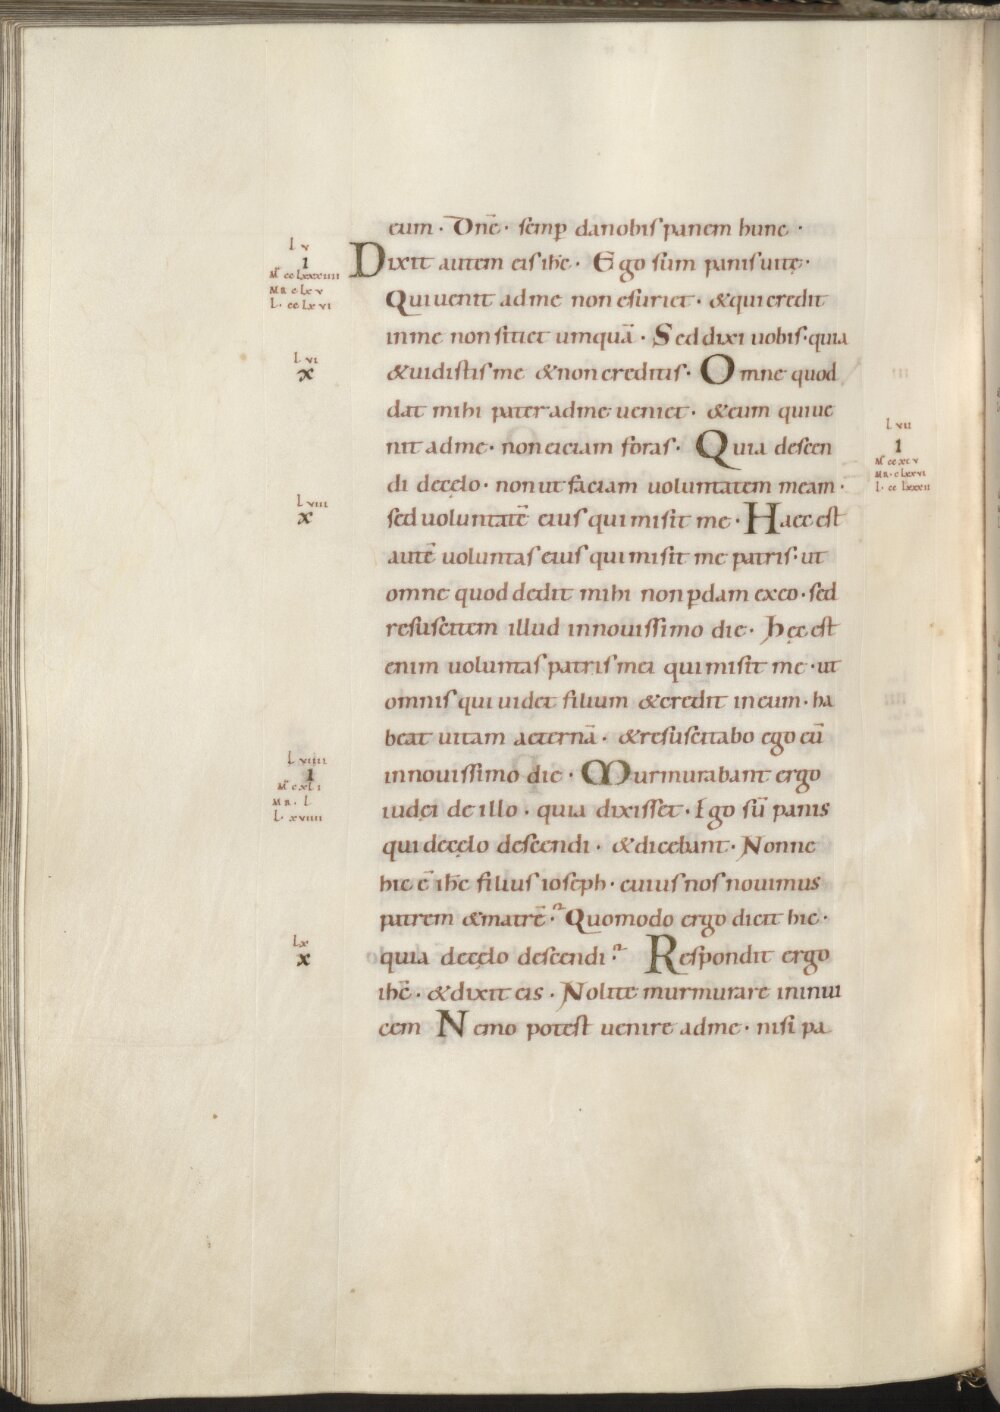 eum · Dn̄e · semp̲ danobis panem hunc ·
L v
1
M̄ cc Lxxxuiiii
MR c Lx v
L · cc Lx vi
Dixit autem eis ih̄c · Ego sum panis uitę ·
Qui uenit ad me non esuriet · & qui credit
in me non sitiet umquā · Sed dixi uobis · quia
L vi
x
& uidistis me & non creditis · Omne quod
dat mihi pater ad me ueniet · & eum qui ue
nit ad me · non eiciam foras · Quia descen
L vii
1
M̄ cc xc v
MR · c Lxxvi
L · cc Lxxxii
di decęlo · non ut faciam uoluntatem meam ·
L viii
x
sed uoluntatē eius qui misit me · Haec est
autē uoluntas eius qui misit me patris · ut
omne quod dedit mihi non p̲dam ex eo · sed
resuscitem illud in nouissimo die · Hęc est
enim uoluntas patris mei qui misit me · ut
omnis qui uidet filium & credit in eum · ha
beat uitam aeternā · & resuscitabo ego eū
L viiii
1
M̄ c xL i
MR · L
L · xviiii
in nouissimo die · Murmurabant ergo
iudęi de illo · quia dixisset · Ego sū panis
qui decęlo descendi · & dicebant · Nonne
hic ē ih̄c filius ioseph · cuius nos nouimus
patrem & matrē · Quomodo ergo dicit hic ·
Lx
x
quia decęlo descendi · Respondit ergo
ih̄c · & dixit eis · Nolite murmurare in inui
cem Nemo potest uenire ad me · nisi pa